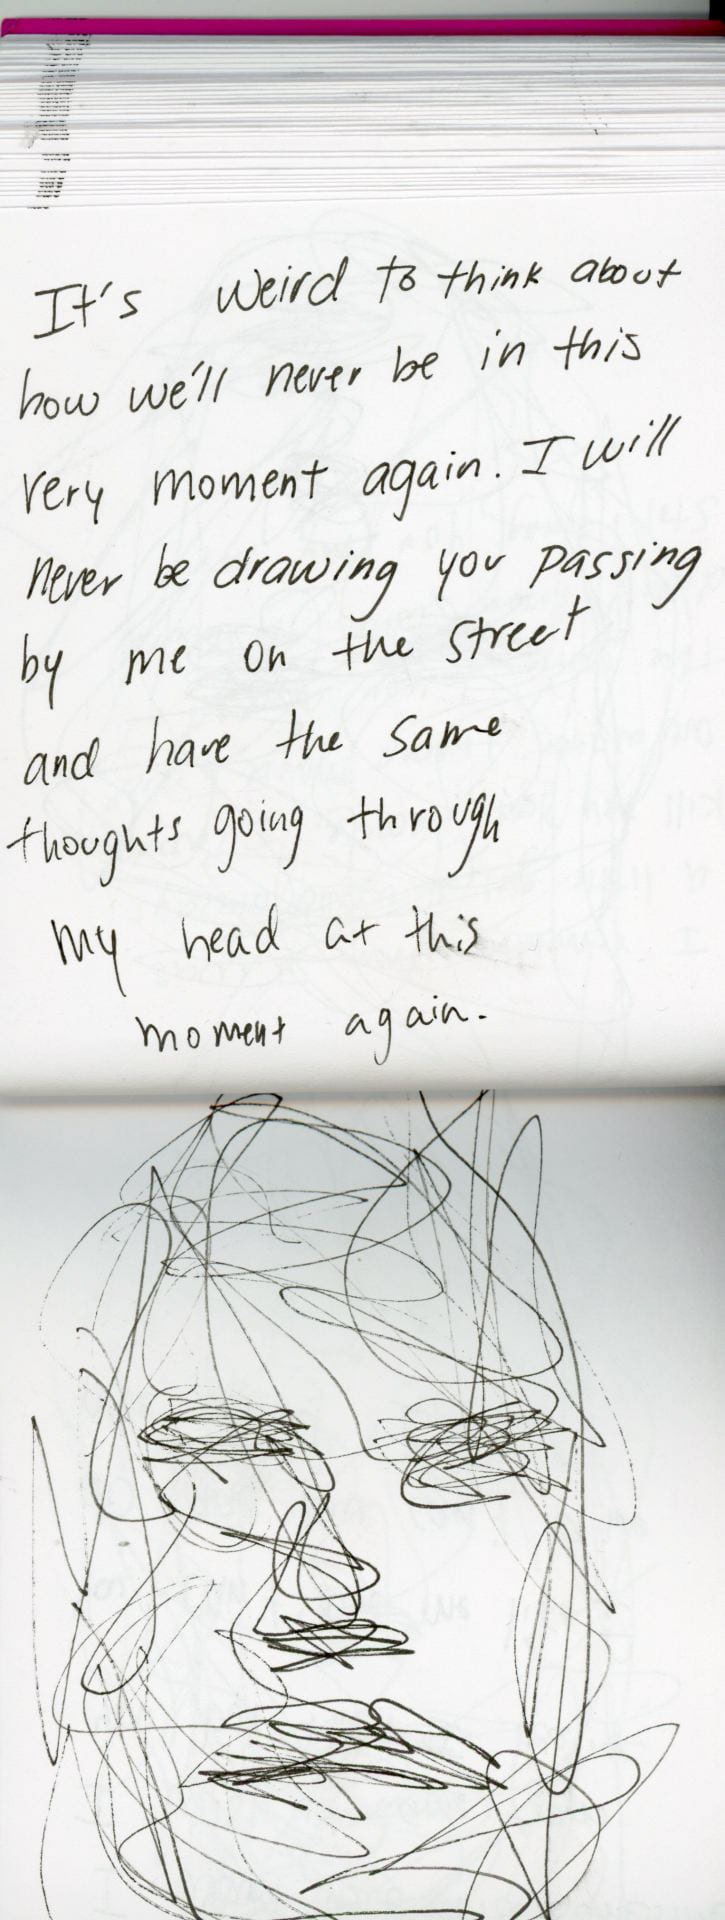 It's weird to think about
how we'll never be in this
very moment again. I will
never be drawing you passing
by me on the street
and have the same
thoughts going through
my head at this
moment again.